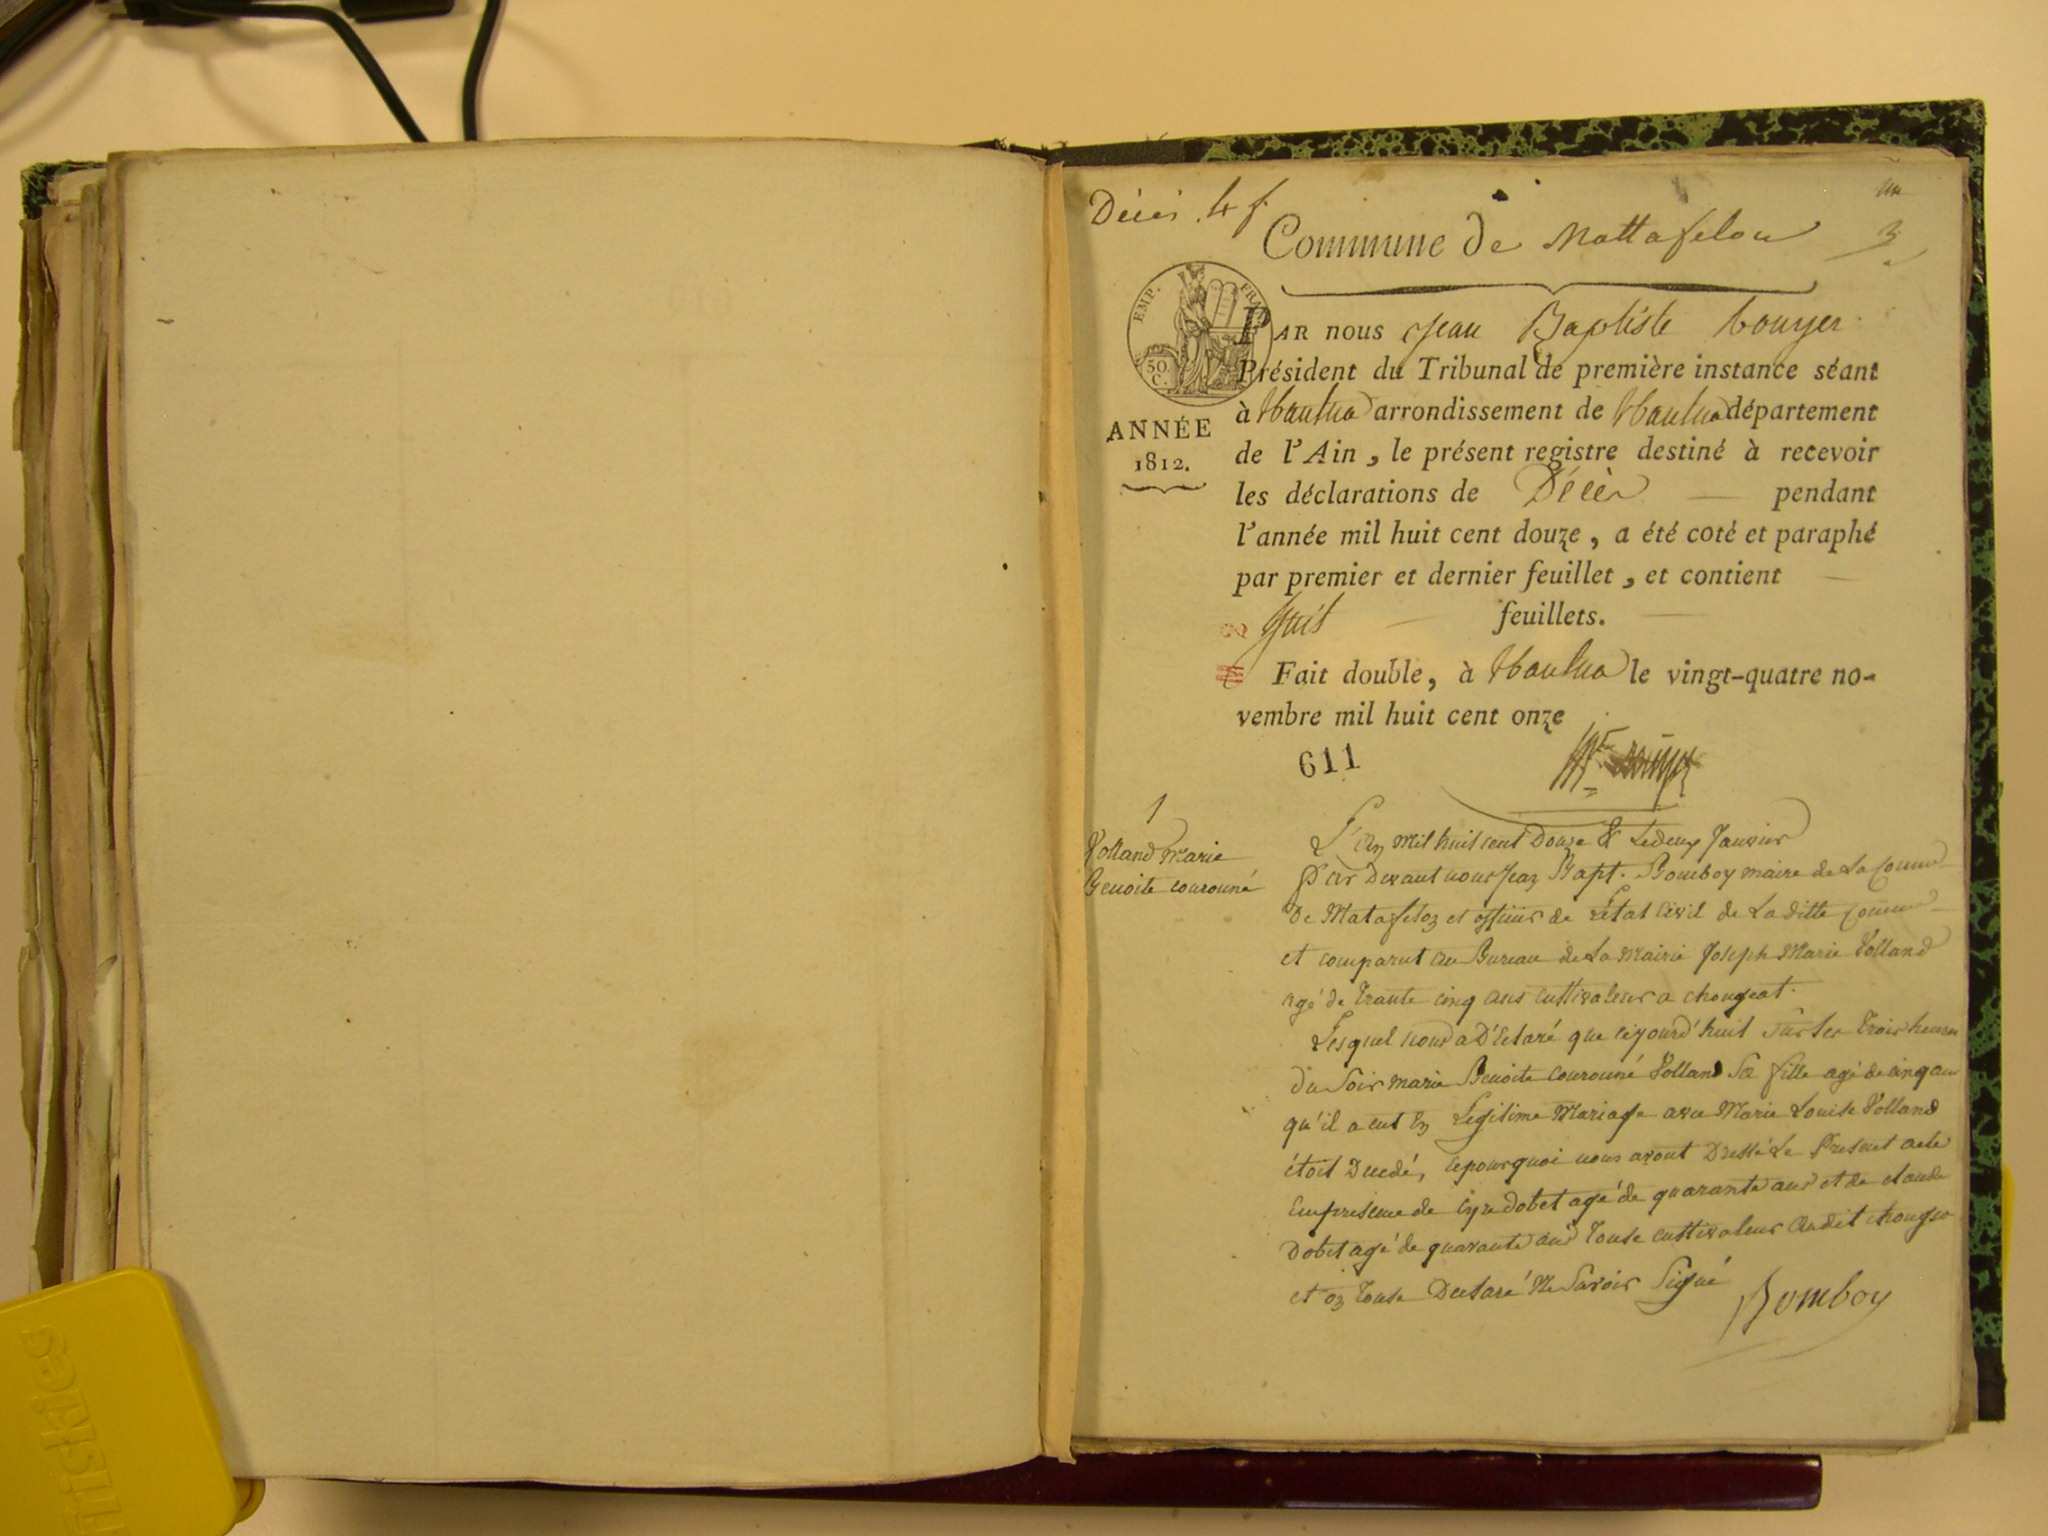 Décès. 4 f.
un
3
Commune de Mattafelon
EMP. FRAN.
50. C.
ANNÉE
1812.
PAR nous Jean Baptiste bouyer
Président du Tribunal de première instance séant
à Nantua arrondissement de Nantua département
de l'Ain, le présent registre destiné à recevoir
les déclarations de Décès — pendant
l'année mil huit cent douze, a été coté et paraphé
par premier et dernier feuillet, et contient —
huit — feuillets. —
Fait double, à Nantua le vingt-quatre no-
vembre mil huit cent onze
611
1
Volland Marie
Benoite couronné
L'an mil huit cent Douze & Ledeux Janvier
Par Devant nous Jean Bapt. Bomboy maire de La Comm
De Matafelon et officier de L'état Civil de La ditte Comm
et comparut au Bureau de La Mairie Joseph Marie Volland
agé de Trante cinq ans cultivateur a chougeat.
Lesquel nous a Déclaré que cejourd'huit Sur Les Trois heures
du Soir marie Benoite Couronné Volland Sa fille agé de cinq ans
qu'il a eut en Legitime Mariage avec Marie Louise Volland
étoit Decedé, cepourquoi nous avont Dressé Le Present acte
Empresence de Cyre dobet agé de quarante ans et de claude
Dobet agé de quarante ans Touse cultivateur audit chougea
et on Touse Declaré Ne Savoir Signé
Bomboy
TiSKieS